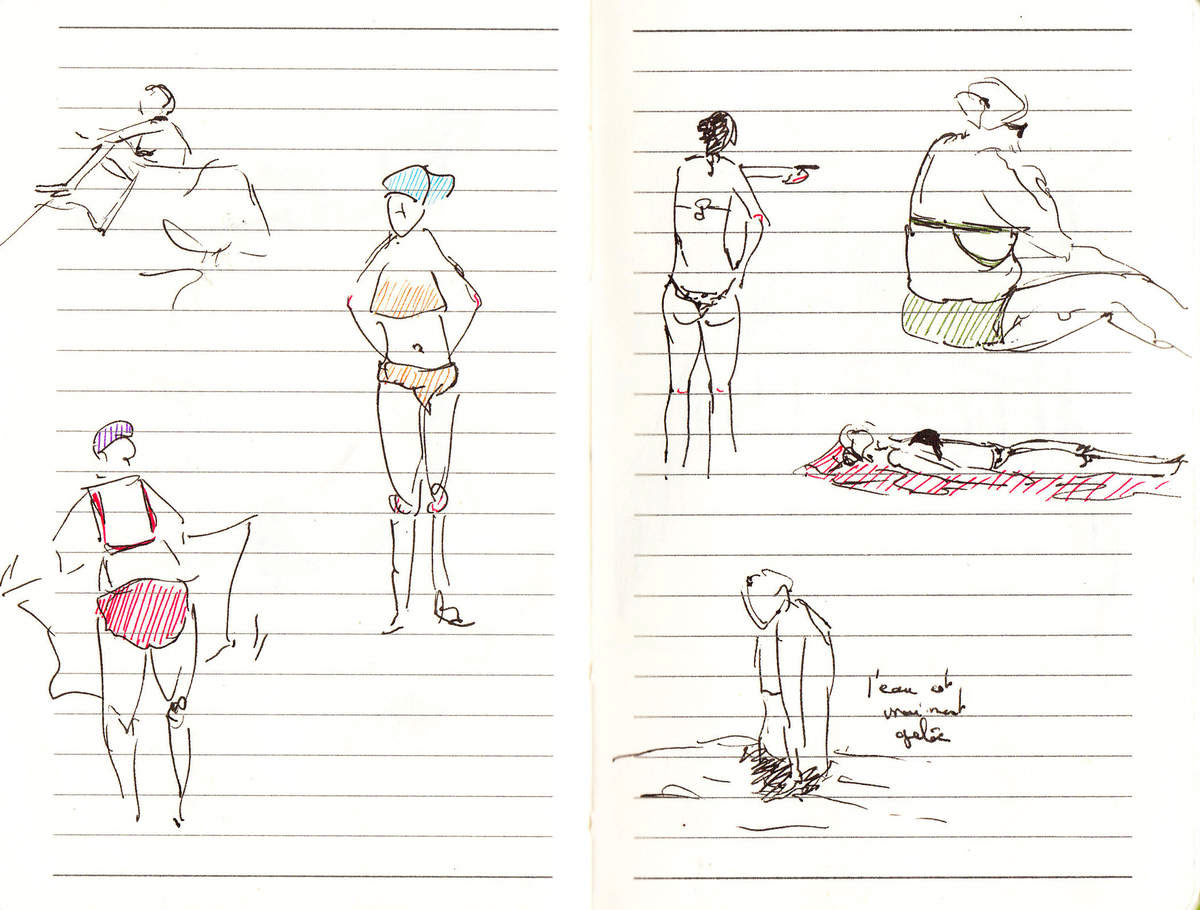 l'eau est
vraiment
gelée